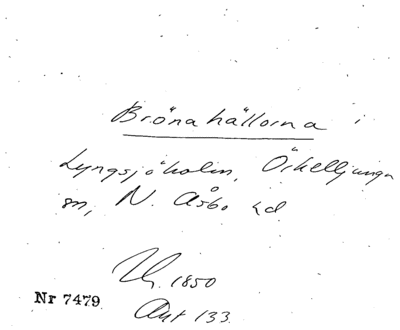 Brönahällorna i
Lyngsjöholm, Örkelljunga
sn, N. Åsbo hd
1850
Nr 7479
Ant 133.